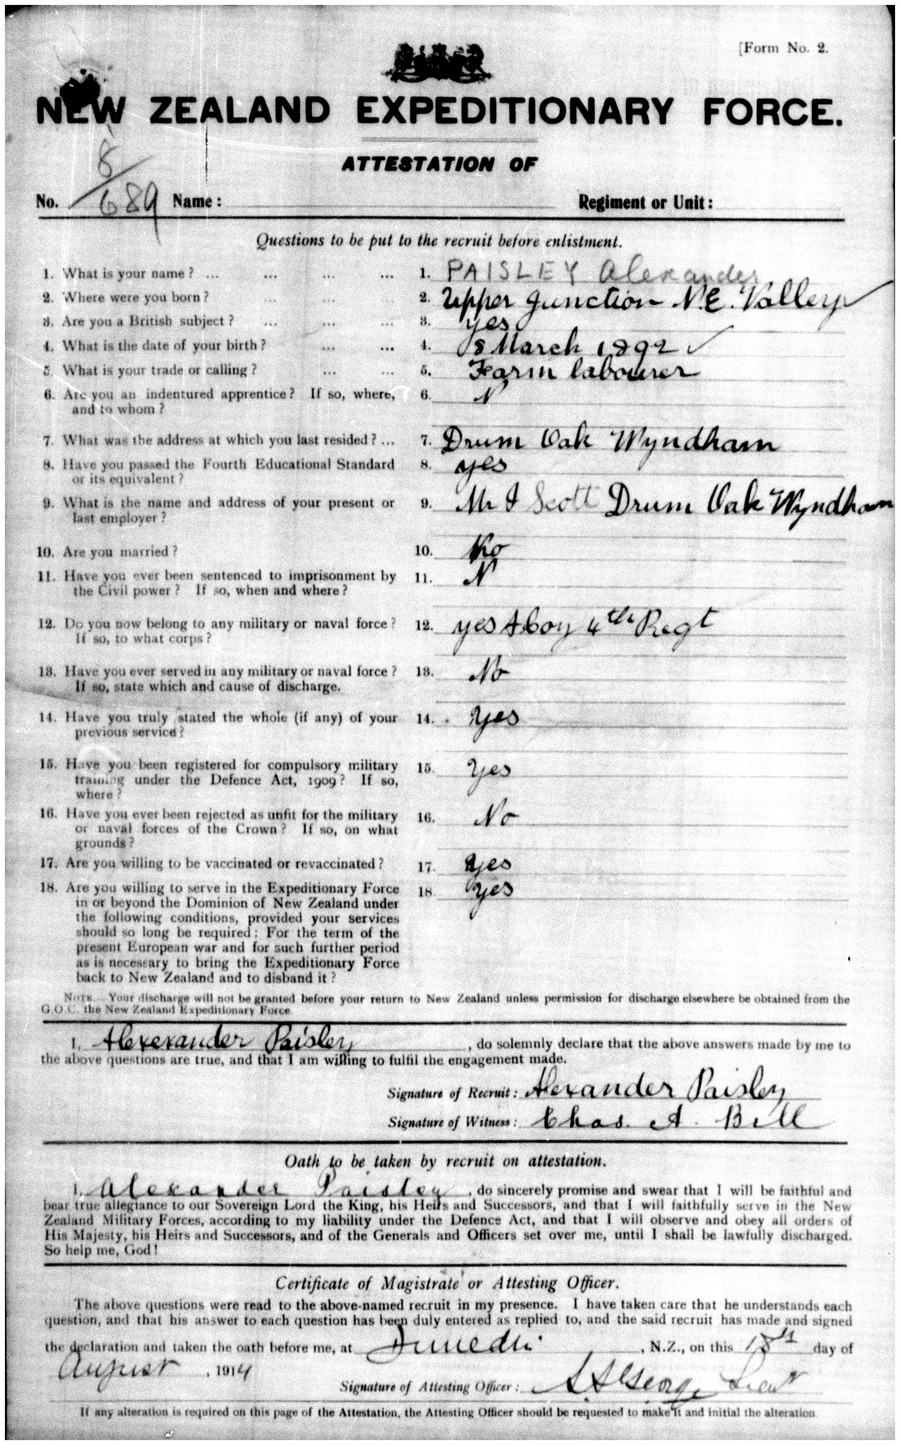 [Form No. 2.
NEW ZEALAND EXPEDITIONARY FORCE.
ATTESTATION OF
No. 8/689 Name: Regiment or Unit:
Questions to be put to the recruit before enlistment.
1. What is your name? ... ... ... ... 1. PAISLEY Alexander
2. Where were you born? ... ... ... 2. Upper Junction N.E. Valley
3. Are you a British subject? ... ... ... 3. yes
4. What is the date of your birth? ... ... 4. 8 March 1892
5. What is your trade or calling? ... ... 5. Farm labourer
6. Are you an indentured apprentice? If so, where, 6. N
and to whom?
7. What was the address at which you last resided? ... 7. Drum Oak Wyndham
8. Have you passed the Fourth Educational Standard 8. yes
or its equivalent?
9. What is the name and address of your present or 9. Mr J Scott Drum Oak Wyndham
last employer?
10. Are you married? 10. No
11. Have you ever been sentenced to imprisonment by 11. N
the Civil power? If so, when and where?
12. Do you now belong to any military or naval force? 12. yes A Coy 4th Regt
If so, to what corps?
13. Have you ever served in any military or naval force? 13. No
If so, state which and cause of discharge.
14. Have you truly stated the whole (if any) of your 14. Yes
previous service?
15. Have you been registered for compulsory military 15. Yes
training under the Defence Act, 1909? If so,
where?
16. Have you ever been rejected as unfit for the military 16. No
or naval forces of the Crown? If so, on what
grounds?
17. Are you willing to be vaccinated or revaccinated? 17. Yes
18. Are you willing to serve in the Expeditionary Force 18. Yes
in or beyond the Dominion of New Zealand under
the following conditions, provided your services
should so long be required: For the term of the
present European war and for such further period
as is necessary to bring the Expeditionary Force
back to New Zealand and to disband it?
NOTE.—Your discharge will not be granted before your return to New Zealand unless permission for discharge elsewhere be obtained from the
G.O.C. the New Zealand Expeditionary Force.
I, Alexander Paisley, do solemnly declare that the above answers made by me to
the above questions are true, and that I am willing to fulfil the engagement made.
Signature of Recruit: Alexander Paisley
Signature of Witness: Chas. A. Bell
Oath to be taken by recruit on attestation.
I, Alexander Paisley, do sincerely promise and swear that I will be faithful and
bear true allegiance to our Sovereign Lord the King, his Heirs and Successors, and that I will faithfully serve in the New
Zealand Military Forces, according to my liability under the Defence Act, and that I will observe and obey all orders of
His Majesty, his Heirs and Successors, and of the Generals and Officers set over me, until I shall be lawfully discharged.
So help me, God!
Certificate of Magistrate or Attesting Officer.
The above questions were read to the above-named recruit in my presence. I have taken care that he understands each
question, and that his answer to each question has been duly entered as replied to, and the said recruit has made and signed
the declaration and taken the oath before me, at Dunedin, N.Z., on this 18th day of
August, 1914
Signature of Attesting Officer: George
If any alteration is required on this page of the Attestation, the Attesting Officer should be requested to make it and initial the alteration.